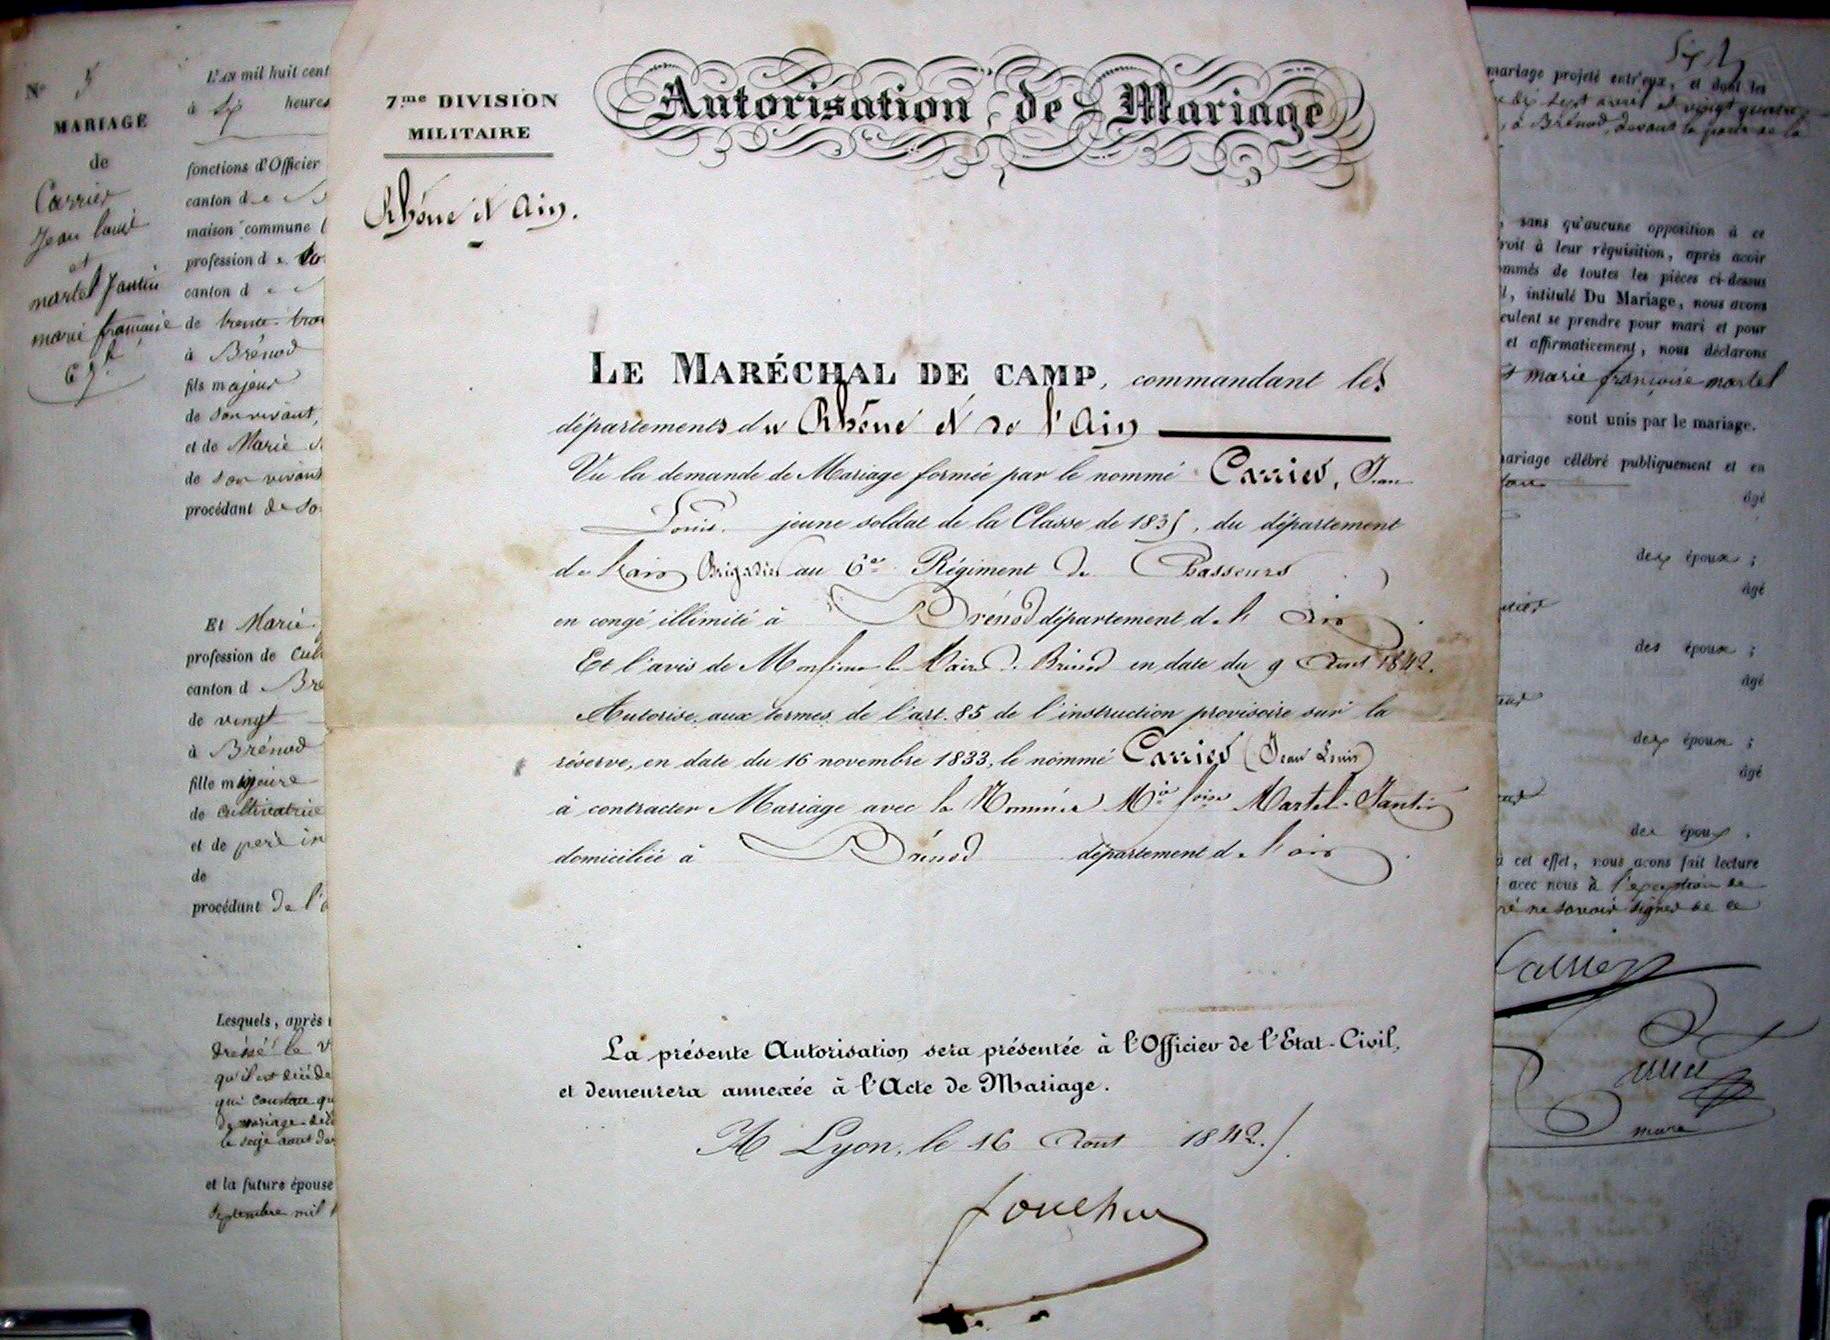 N° 5
MARIAGE
de
Carrier
Jean Louis
et
martel Jantin
marie françoise
L'AN mil huit cent
à six heures
fonctions d'Officier
canton de
maison commune
profession de
canton d
de trente-trois
à Brénod
fils majeur
de son vivant,
et de Marie
de son vivant
procédant de
Et Marie
profession de
canton d
de vingt
à Brénod
fille majeure
de cultivatrice
et de père in
de
procédant de l'
Lesquels, après
dressé le
qu'il est
qui constate
de mariage
le seize aout
et la future épouse
septembre mil
7.me DIVISION
MILITAIRE
Autorisation de Mariage
Rhône et Ain.
LE MARÉCHAL DE CAMP, commandant les
départements du Rhône et de l'Ain
Vu la demande de Mariage formée par le nommé Carrier, Jean
Louis, jeune soldat de la Classe de 1835, du département
de l'ain Brigadier au 6e Régiment de Chasseurs
en congé illimité à Brénod département de l'Ain
Et l'avis de Monsieur le Maire de Brénod en date du 9 Aout 1842.
Autorise, aux termes de l'art. 85 de l'instruction provisoire sur la
réserve, en date du 16 novembre 1833, le nommé Carrier (Jean Louis)
à contracter Mariage avec la Nommée Mie foise Martel-Jantin
domiciliée à Brénod département de l'ain
La présente Autorisation sera présentée à l'Officier de l'Etat-Civil,
et demeurera annexée à l'Acte de Mariage.
A Lyon, le 16 Aout 1842.
mariage projeté entr'eux, et dont les
dix sept aout et vingt quatre
à Brénod, devant la porte de la
sans qu'aucune opposition à ce
roit à leur réquisition, après avoir
ommés de toutes les pièces ci-dessus
intitulé Du Mariage, nous avons
eulent se prendre pour mari et pour
et affirmativement, nous déclarons
marie françoise martel
sont unis par le mariage.
ariage célébré publiquement et en
âgé
des époux ;
âgé
des époux ;
âgé
des époux ;
âgé
des époux .
à cet effet, nous avons fait lecture
avec nous à l'exception de
ré ne savoir signer de ce
Carrier
maire